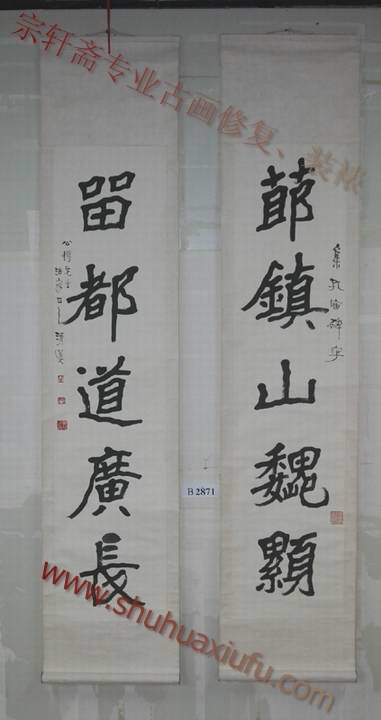 宗轩斋专业古画修复、装裱
節鎮山巍顯
集孔宙碑字
留都道廣長
B2871
www.shuhuaxiufu.com